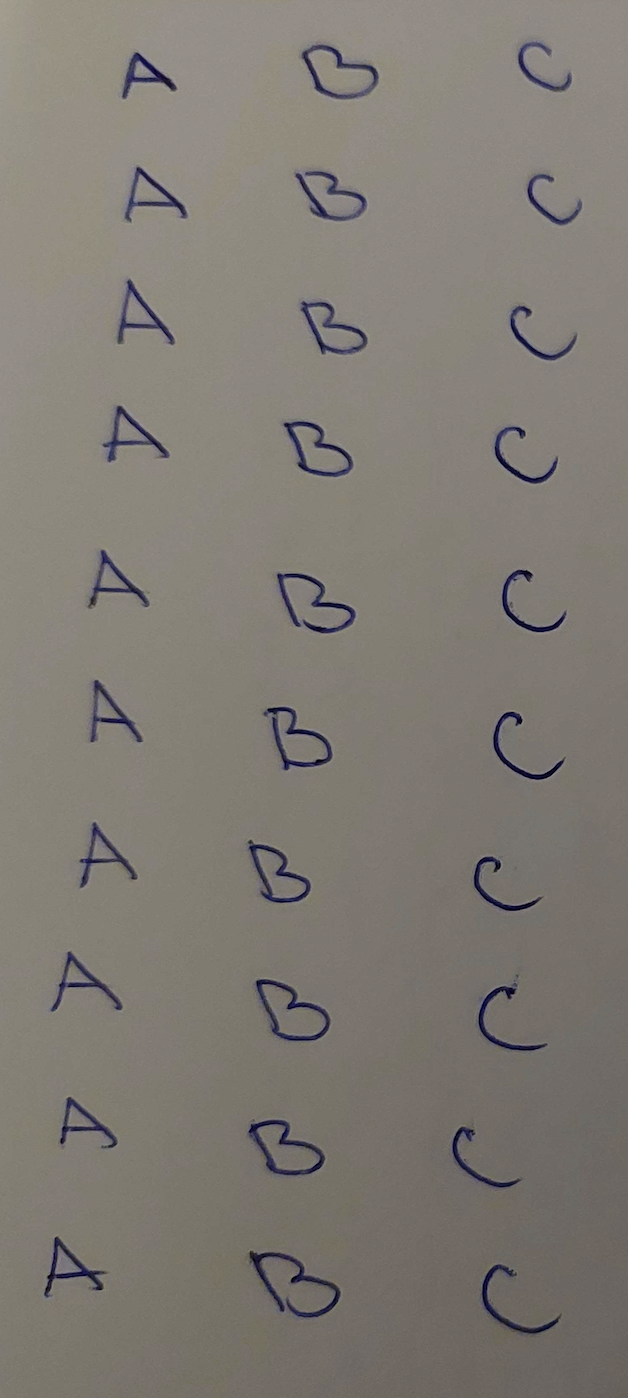 A B C
A B C
A B C
A B C
A B C
A B C
A B C
A B C
A B C
A B C